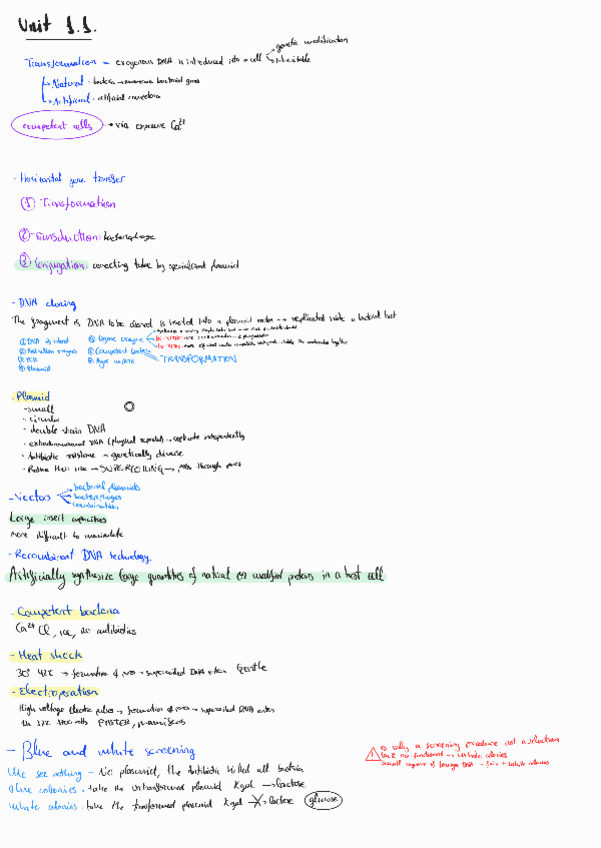 Unit 1.1.
Transformation - exogenous DNA is introduced into a cell
genetic modification
inheritable
Natural: bacteria → numerous bacterial genes
Artificial:
competent cells → via exposure Ca²⁺
- Horizontal gene transfer
① Transformation
② Transduction: bacteriophage
③ Conjugation: connecting tube by specialized plasmid
- DNA cloning
The fragment of DNA to be cloned is inserted into a plasmid vector → replicated inside a bacterial host
① DNA of interest
② Restriction enzymes
③ PCR
④ Plasmid
⑤ Ligase enzyme
⑥ Competent bacteria
⑦ Agar
TRANSFORMATION
- Plasmid
- small
- circular
- double strain DNA
- extrachromosomal DNA (physical separated) → replicate independently
- Antibiotic resistance → genetically diverse
- Reduce their size → SUPERCOILING → pass through pores
- Vectors
bacterial plasmids
bacteriophages
Large insert capacities
more difficult to manipulate
- Recombinant DNA technology
Artificially synthesize large quantities of natural or modified proteins in a host cell
- Competent bacteria
Ca²⁺ Cl, ice, no antibiotics
- Heat shock
30" 42°C → formation of pores → supercoiled DNA enters Gentle
- Electroporation
High voltage electric pulse → formation of pores → supercoiled DNA enters
FASTER,
- Blue and white screening
We see nothing - No plasmid, the Antibiotic killed all bacteria
Blue colonies: take the untransformed plasmid Xgal → lactose
White colonies: take the transformed plasmid Xgal -X→ lactose glucose
is only a screening procedure not a selection
non functional → white colonies
small regions of foreign DNA